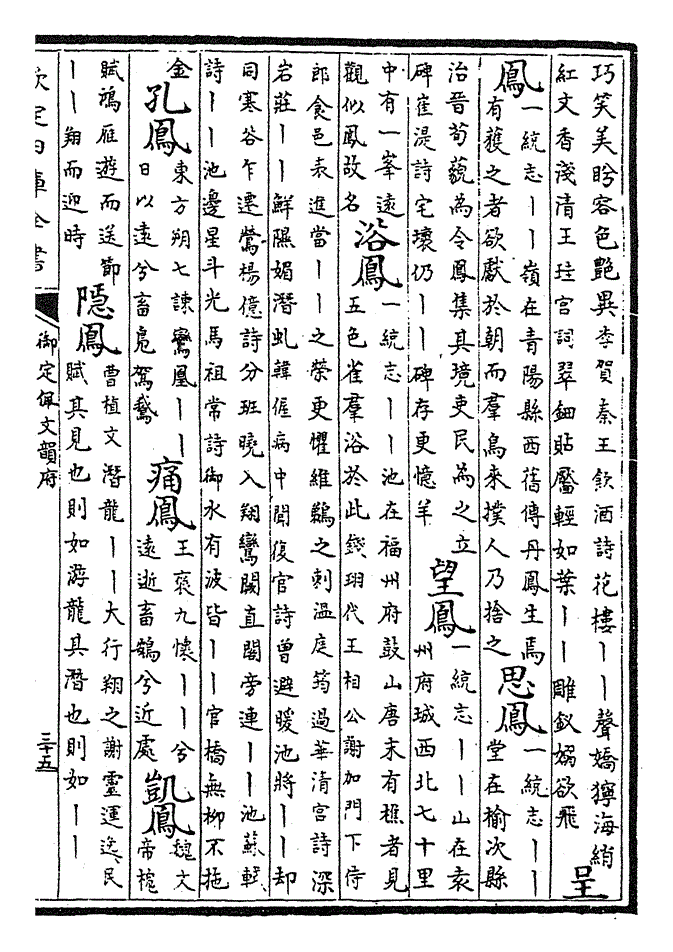 巧笑美盻容色艷異李賀秦王飲酒詩花樓丨丨聲嬌獰海綃
紅文香淺清王珪宮詞翠鈿貼靨輕如葉丨丨雕釵嫋欲飛
呈
鳳
一統志丨丨嶺在青陽縣西舊傳丹鳳生焉
有獲之者欲獻於朝而羣鳥來撲人乃捨之
思鳳
一統志丨丨
堂在榆次縣
治晉荀藐為令鳳集其境吏民為之立
碑崔湜詩宅壞仍丨丨碑存更憶羊
望鳳
一統志丨丨山在袁
州府城西北七十里
中有一峯遠
觀似鳳故名
浴鳳
一統志丨丨池在福州府鼓山唐末有樵者見
五色雀羣浴於此錢珝代王相公謝加門下侍
郎食邑表進當丨丨之榮更懼維鵜之刺溫庭筠過華清宮詩深
岩莊丨丨鮮隰媚潛虬韓偓病中聞復官詩曾避暖池將丨丨却
同寒谷乍遷鶯楊億詩分班曉入翔鸞閣直閣旁連丨丨池蘇軾
詩丨丨池邊星斗光馬祖常詩御水有波皆丨丨官橋無柳不拖
金
孔鳳
東方朔七諫鸞凰丨丨
日以遠兮畜鳧駕鵝
痛鳳
王褒九懷丨丨兮
遠逝畜鴳兮近處
凱鳳
魏文
帝槐
賦鴻雁遊而送節
丨丨翔而迎時
隱鳳
曹植文潛龍丨丨大行翔之謝靈運逸民
賦其見也則如游龍其潛也則如丨丨
欽定四庫全書
御定佩文韻府
三十五